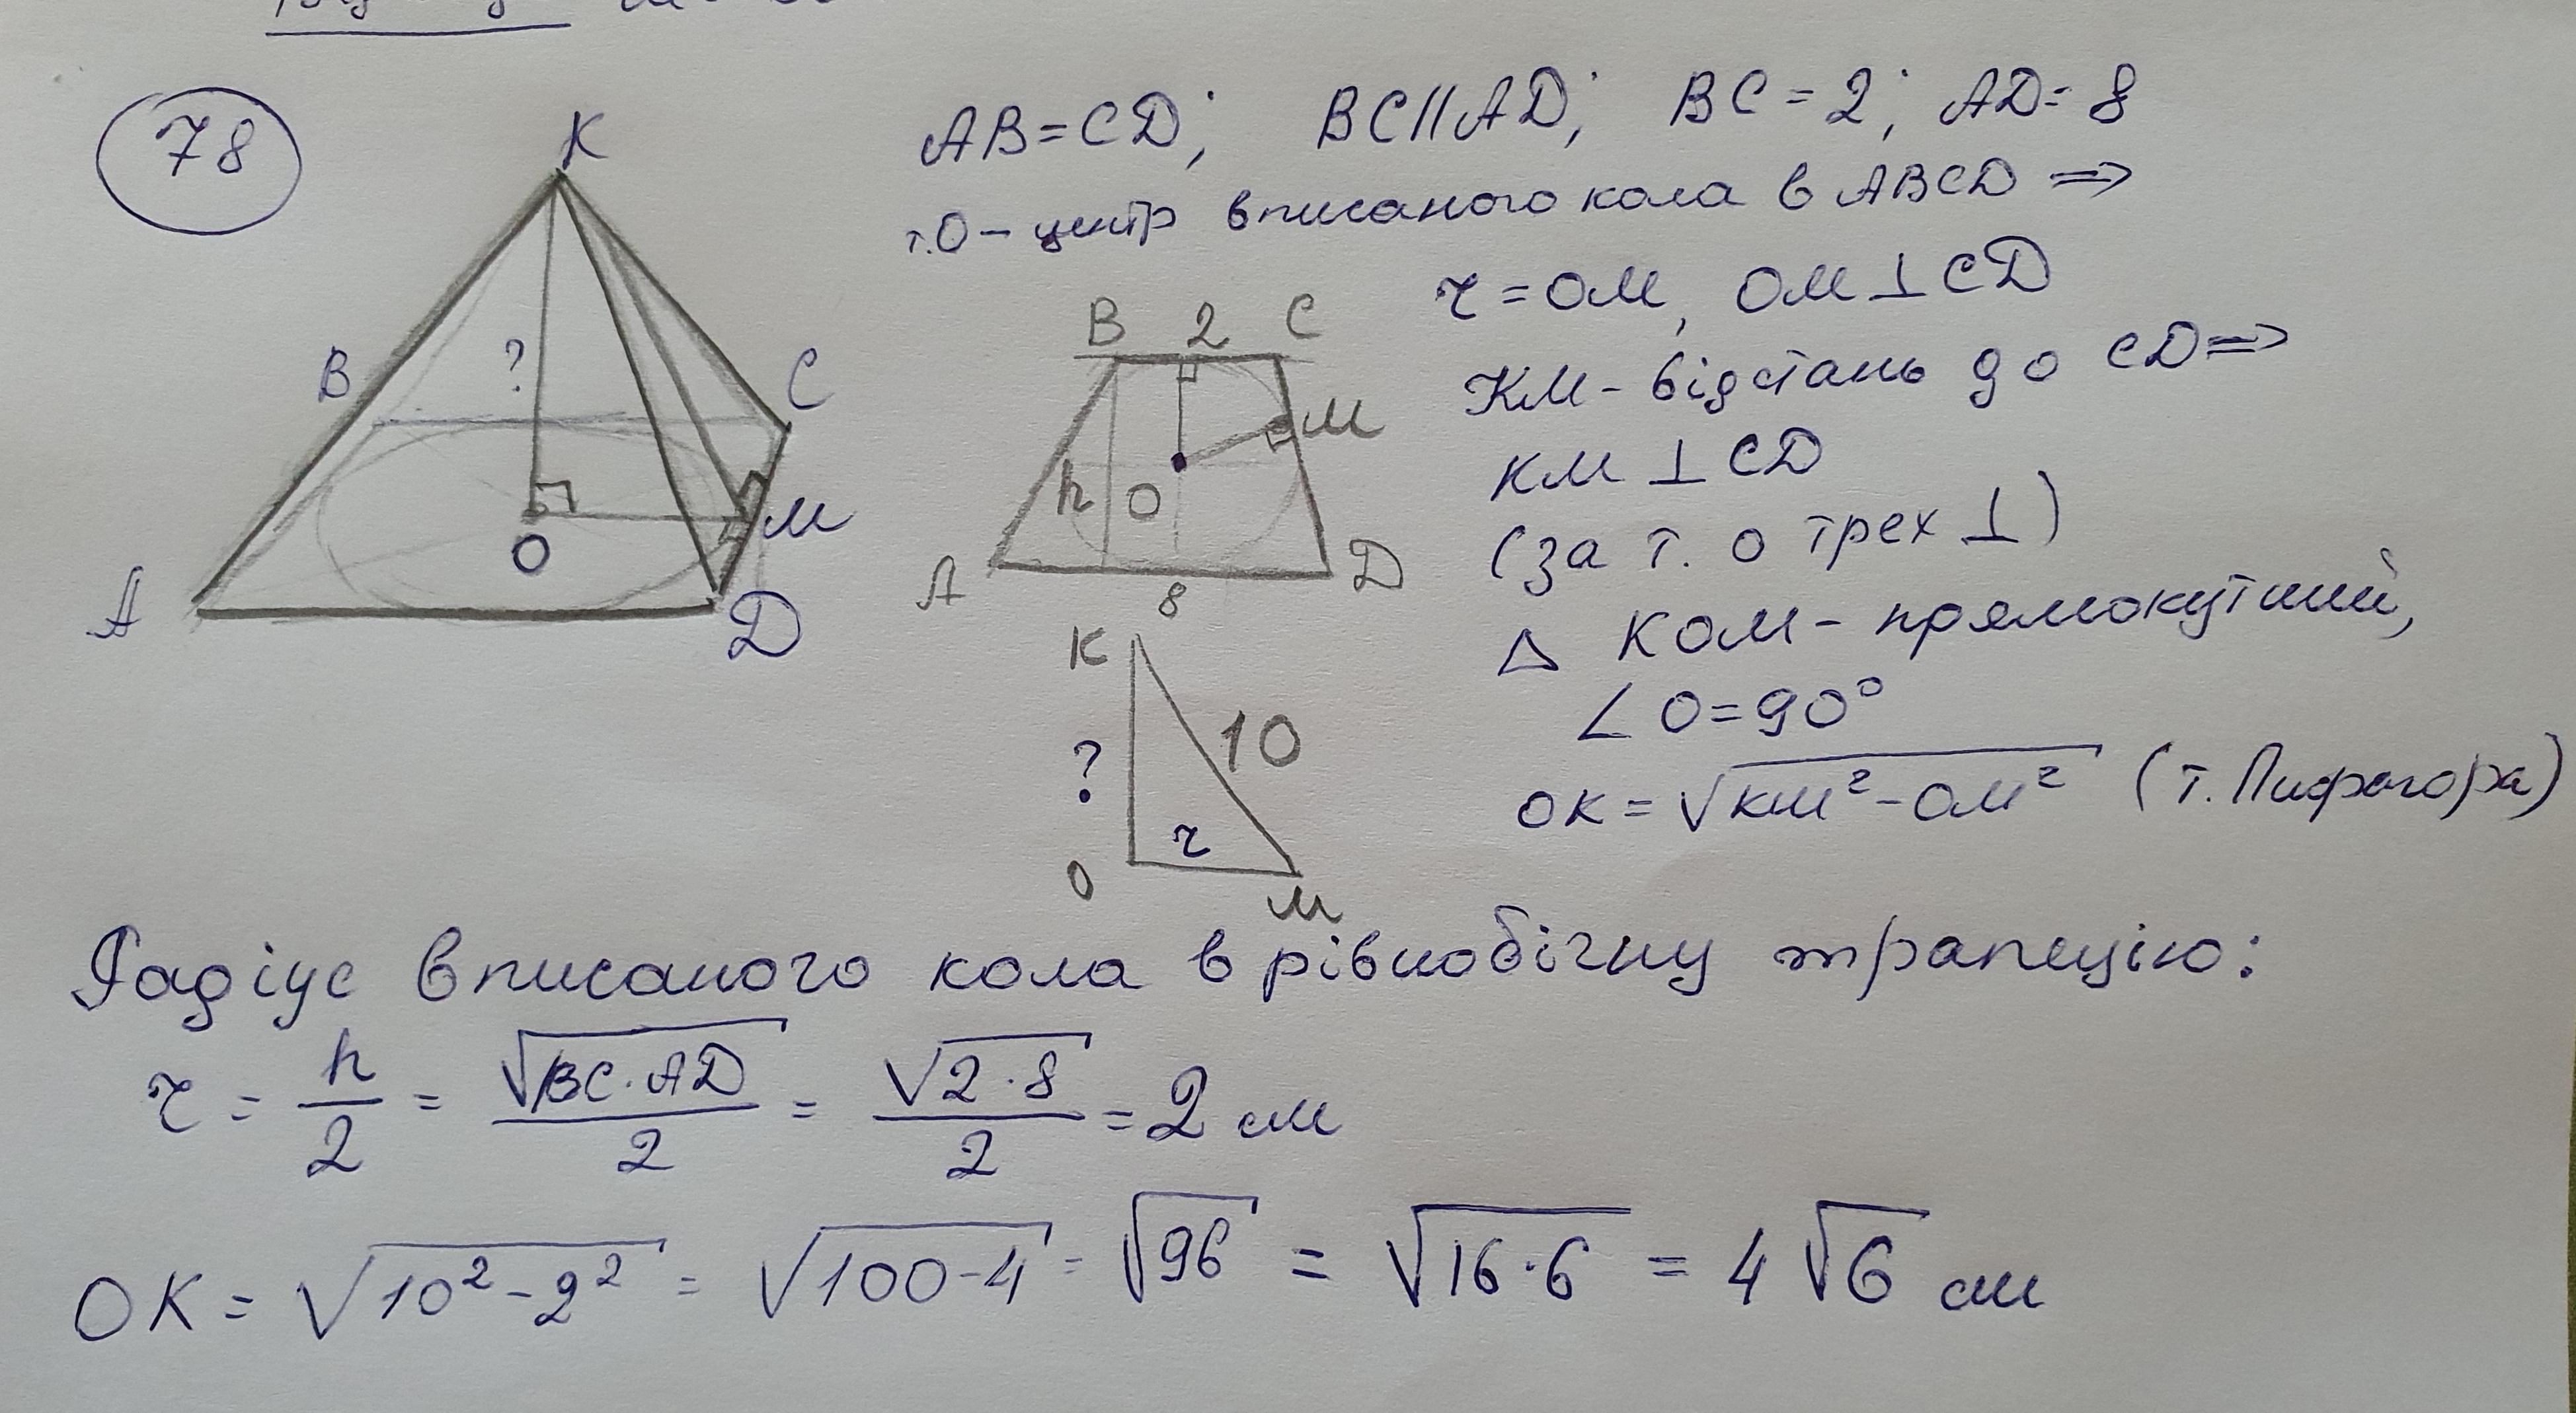 78
AB=CD; BC||AD; BC=2; AD=8
т.О - центр вписаного кола в ABCD ⇒
r = OM, OM ⊥ CD
KM - відстань до CD ⇒
KM ⊥ CD
(за т. о трех ⊥)
△ KOM - прямокутний,
∠O=90°
OK = √(KM² - OM²) (т. Пифагора)
K
B
?
C
M
O
A
D
B 2 C
M
h O
A 8 D
K
? 10
r
O M
Радіус вписаного кола в рівнобічну трапецію:
r = h/2 = √(BC·AD)/2 = √(2·8)/2 = 2 см
OK = √(10²-2²) = √(100-4) = √96 = √(16·6) = 4√6 см